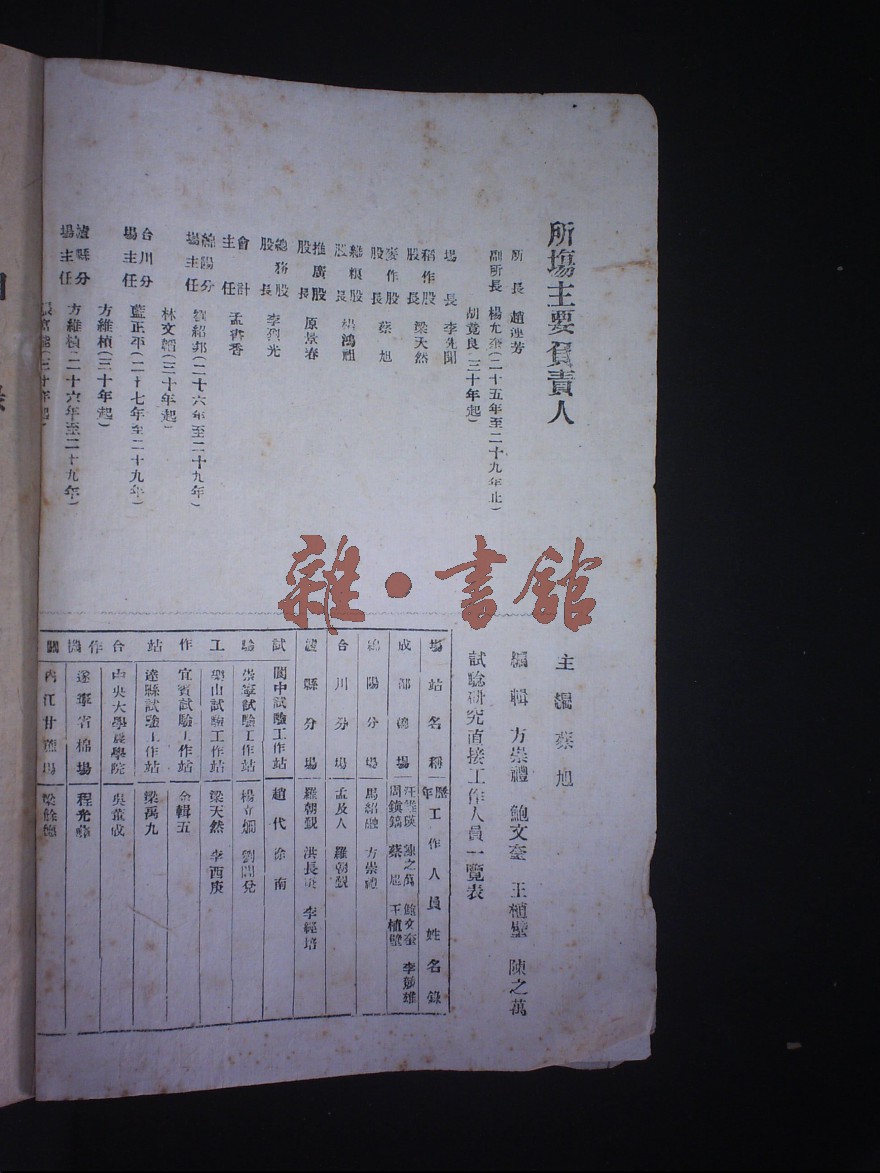 所場主要負責人
所長 趙連芳
副所長 楊允奎(二十五年至二十九年止)
胡竟良(三十年起)
場長 李先聞
稻作股股長 梁天然
麥作股股長 蔡旭
雜糧股股長 楊鴻祖
推廣股股長 原景春
總務股股長 李 光
會計主任 孟書香
綿陽分場主任 劉紹邦(二十六年至二十九年)
林文韜(三十年起)
合川分場主任 藍正平(二十七年至二十九年)
方維楨(三十年起)
瀘縣分場主任 方維楨(二十六年至二十九年)
(三十年起)
主編 蔡旭
編輯 方崇禮 鮑文奎 王植璧 陳之萬
試驗研究直接工作人員一覽表
場站名稱 歷年工作人員姓名錄
成都總場 汪 瑛 陳之萬 鮑文奎 李競雄 周鎮鎬 蔡旭 王植璧
綿陽分場 馬紹融 方崇禮
合川分場 孟及人 羅朝覲
瀘縣分場 羅朝覲 洪長 李經培
試驗工作站
閬中試驗工作站 趙代 徐南
崇寧試驗工作站 楊立烱 劉開発
樂山試驗工作站 梁天然 李酉庚
宜賓試驗工作站 余輯五
達縣試驗工作站 梁禹九
合作機關
中央大學農學院 吳董成
遂寧省棉場 程光
內江甘蔗場 梁餘
雜·書館